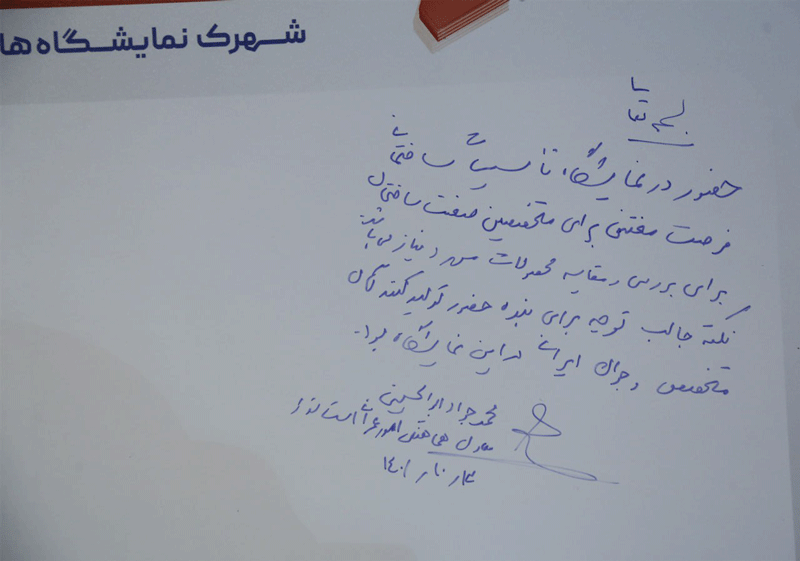 شهرک نمایشگاه ها
بسمه تعالی
حضور در نمایشگاه تاسیسات ساختمانی
فرصت مغتنمی برای متخصصین صنعت ساختمان
برای بررسی و مقایسه محصولات مورد نیاز می باشد
نکته جالب توجه برای بنده حضور تولیدکنندگان
متخصص و جوان ایرانی در این نمایشگاه بود.
محمدجواد ابوالحسینی
معاون هماهنگی امور عمرانی استانداری
۱۴۰۱